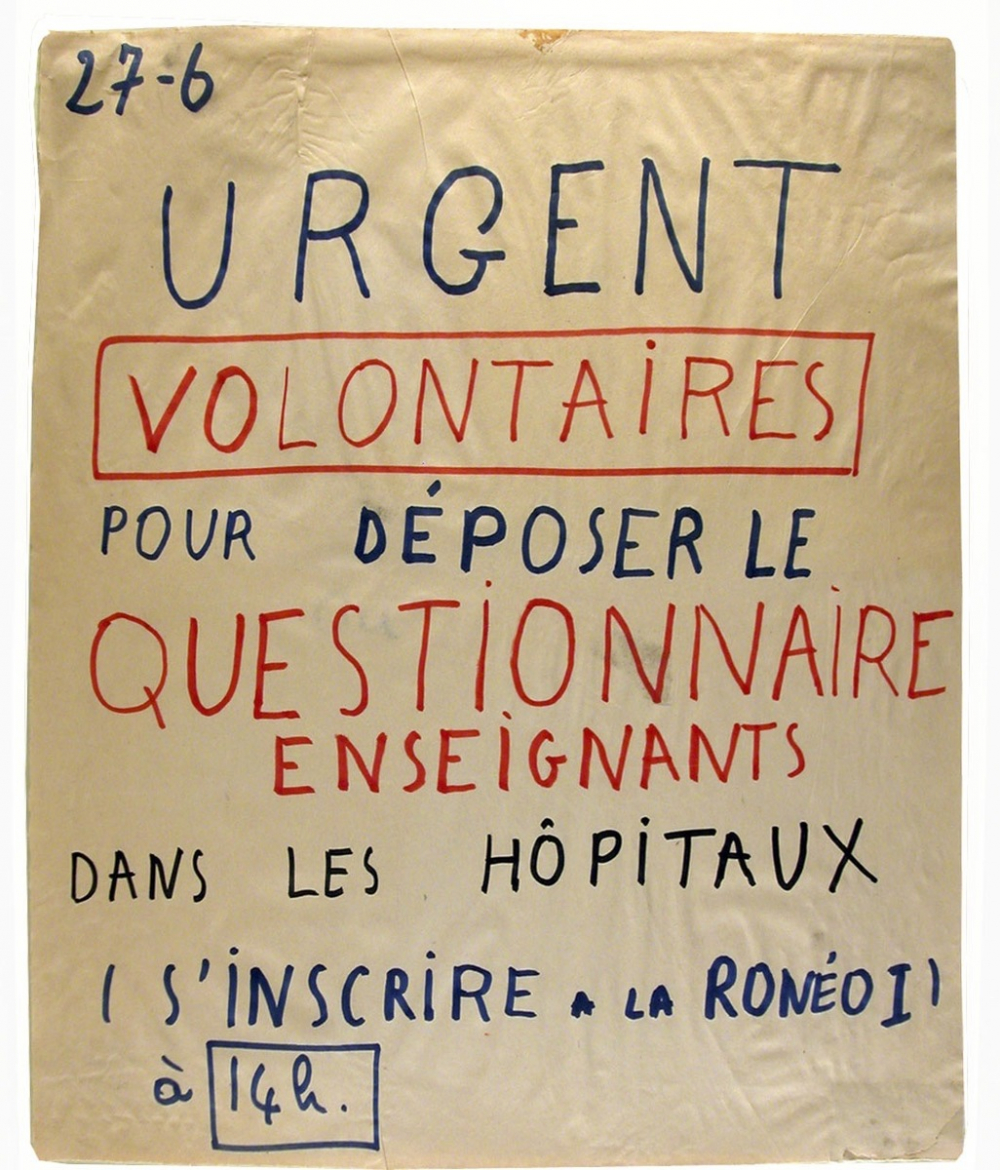 27-6
URGENT
VOLONTAIRES
POUR DÉPOSER LE
QUESTIONNAIRE
ENSEIGNANTS
DANS LES HÔPITAUX
( S'INSCRIRE A LA RONÉO I )
à 14h.